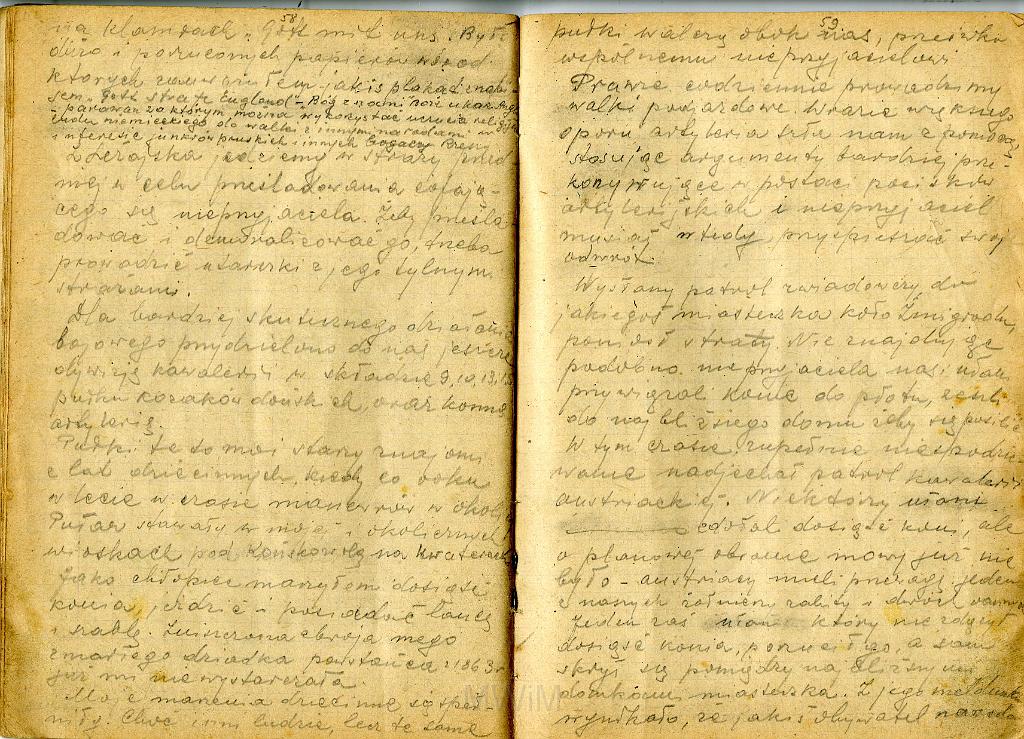 58
na klamrach „Gott mit uns". Było
dużo i porzuconych papierów wśród
których zauważyłem jakiś plakat z napi-
sem „Gott strafe England – Boże ukarz Anglję
– parawan za którym można wykorzystać uczucia religijne
ludu niemieckiego do walki z innymi narodami w
interesie junkrów pruskich i innych bogaczy Rzeszy
Z Leżajska jedziemy w straży przed
niej w celu prześladowania cofają-
cego się nieprzyjaciela. Żeby prześla
dować i demoralizować go, trzeba
prowadzić utarczki z jego tylnymi
strażami.
Dla bardziej skutecznego działania
bojowego przydzielono do nas jeszcze
dywizję kawalerii w składzie 9, 10, 13,
pułku kozaków dońskich, oraz konną
artylerię.
Pułki te to moi starzy znajomi
z lat dziecinnych, kiedy co roku
w lecie w czasie manewrów w okolicy
Puław stawały w mojej i okolicznych
wioskach pod Końskowolą na kwaterach
Jako chłopiec marzyłem dosiąść
konia, jeździć i posiadać lancę
i szablę. Zniszczona zbroja mego
zmarłego dziadka powstańca z 1863 r
już mi nie wystarczała.
Moje marzenia dziecinne się speł
niły. Choć inni ludzie, lecz te same
59
pułki walczą obok nas, przeciwko
wspólnemu nieprzyjacielowi
Prawie codziennie prowadzimy
walki podjazdowe. W razie większego
oporu artyleria szle nam z pomocą
stosując argumenty bardziej prze-
konywujące w postaci pocisków
artyleryjskich i nieprzyjaciel
musiał wtedy przyspieszać swój
odwrót.
Wysłany patrol zwiadowczy do
jakiegoś miasteczka koło Żmigrodu,
poniósł straty. Nie znajdując
podobno nieprzyjaciela nasi ułani
przywiązali konie do płotu, weszli
do najbliższego domu żeby się posilić
W tym czasie zupełnie niespodzie-
wanie nadjechał patrol kawalerii
austriackiej. Niektórzy ułani
zdołali dosiąść koni, ale
o planowej obronie mowy już nie
było – austriacy mieli przewagę. jeden
z naszych żołnierzy zabity i dwóch
Jeden zaś ułan który nie zdążył
dosiąść konia, porzucił go, a sam
skrył się pomiędzy najbliższymi
domkami miasteczka. Z jego meldunku
wynikało, że jakiś obywatel
MWiM